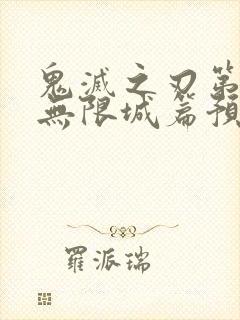 鬼滅之刃第
無限城篇預
羅派瑞